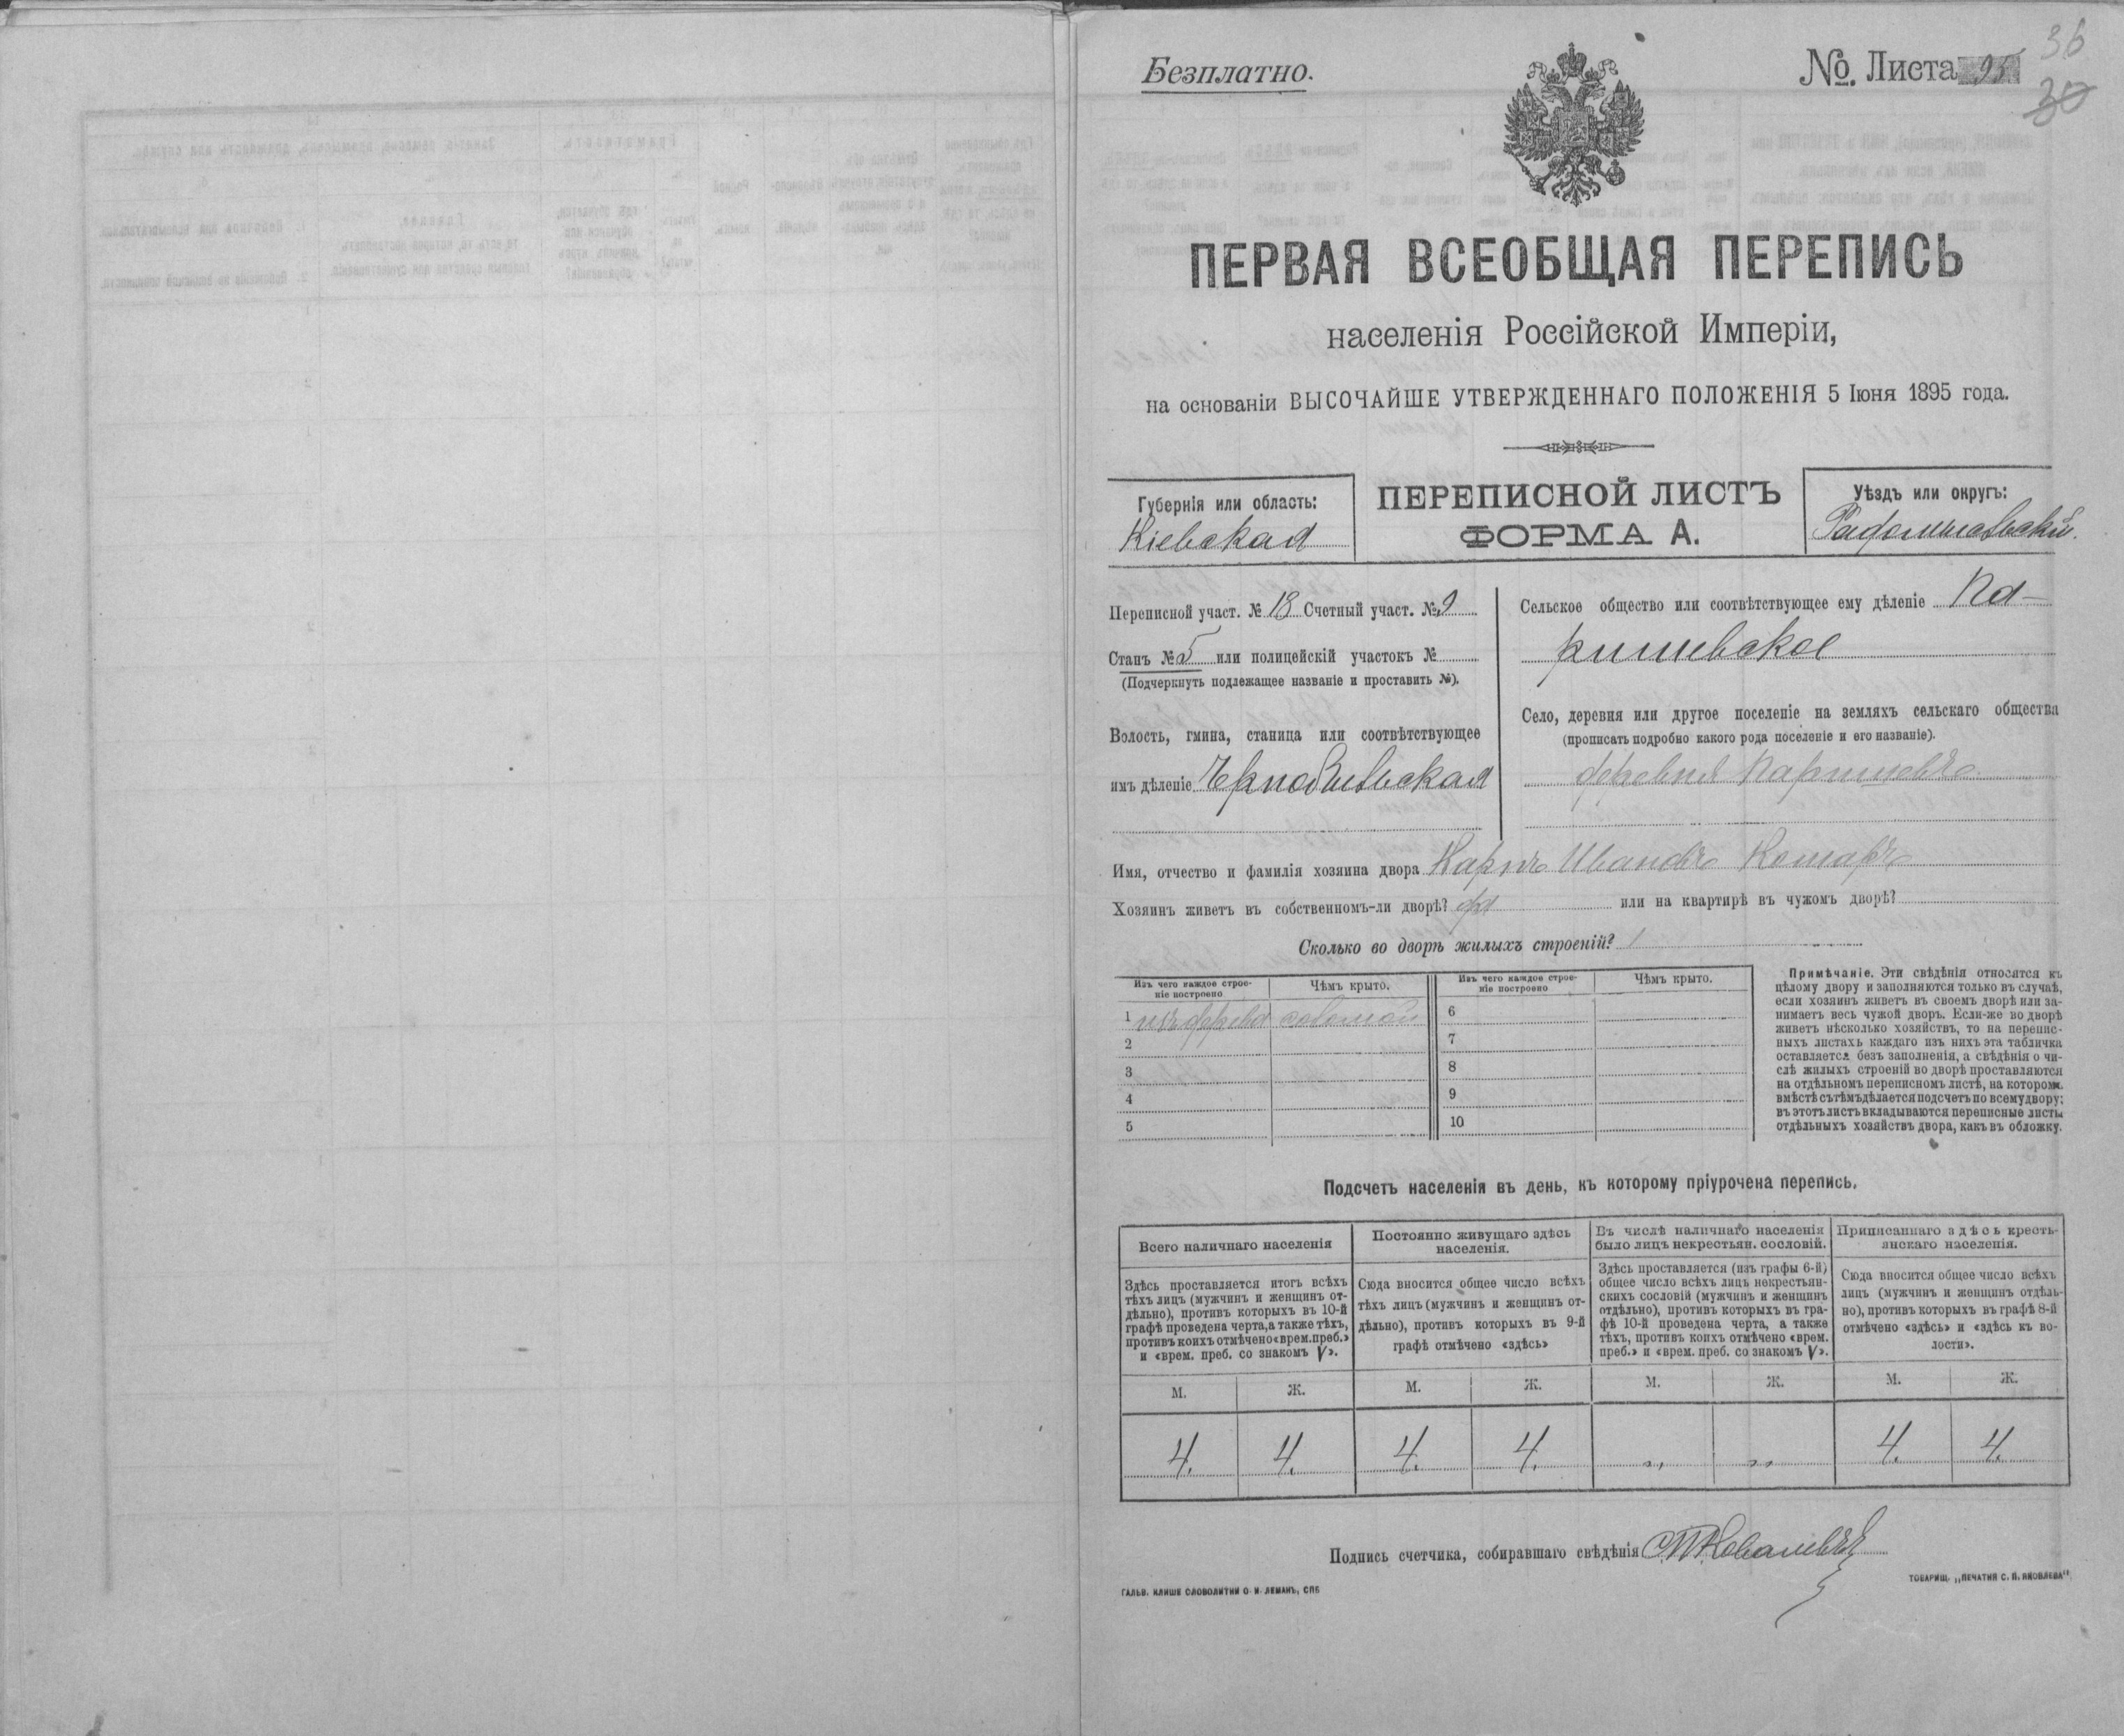 Безплатно.
№ Листа 95
36
30
ПЕРВАЯ ВСЕОБЩАЯ ПЕРЕПИСЬ
населенія Россійской Имперіи,
на основаніи ВЫСОЧАЙШЕ УТВЕРЖДЕННАГО ПОЛОЖЕНІЯ 5 Іюня 1895 года.
Губернія или область:
Кіевская
ПЕРЕПИСНОЙ ЛИСТЪ
ФОРМА А.
Уѣздъ или округъ:
Радомысльскій.
Переписной участ. № 18 Счетный участ. № 9
Станъ № 5 или полицейскій участокъ №
(Подчеркнуть подлежащее названіе и проставить №).
Волость, гмина, станица или соотвѣтствующее
имъ дѣленіе Чернобыльская
Сельское общество или соотвѣтствующее ему дѣленіе Па-
ришевское
Село, деревня или другое поселеніе на земляхъ сельскаго общества
(прописать подробно какого рода поселеніе и его названіе).
деревня Паришевъ
Имя, отчество и фамилія хозяина двора Карпъ Ивановъ Комаръ
Хозяинъ живетъ въ собственномъ-ли дворѣ? да или на квартирѣ въ чужомъ дворѣ?
Сколько во дворѣ жилыхъ строеній? 1
Изъ чего каждое строе-
ніе построено
Чѣмъ крыто.
Изъ чего каждое строе-
ніе построено
Чѣмъ крыто.
1 изъ дерева соломой
2
3
4
5
6
7
8
9
10
Примѣчаніе. Эти свѣдѣнія относятся къ
цѣлому двору и заполняются только въ случаѣ,
если хозяинъ живетъ въ своемъ дворѣ или за-
нимаетъ весь чужой дворъ. Если-же во дворѣ
живетъ нѣсколько хозяйствъ, то на перепис-
ныхъ листахъ каждаго изъ нихъ эта табличка
оставляется безъ заполненія, а свѣдѣнія о чи-
слѣ жилыхъ строеній во дворѣ проставляются
на отдѣльномъ переписномъ листѣ, на которомъ
вмѣстѣ съ тѣмъ дѣлается подсчетъ по всему двору;
въ этотъ листъ вкладываются переписные листы
отдѣльныхъ хозяйствъ двора, какъ въ обложку.
Подсчетъ населенія въ день, къ которому пріурочена перепись.
Всего наличнаго населенія
Здѣсь проставляется итогъ всѣхъ
тѣхъ лицъ (мужчинъ и женщинъ от-
дѣльно), противъ которыхъ въ 10-й
графѣ проведена черта, а также тѣхъ,
противъ коихъ отмѣчено «врем. преб.»
и «врем. преб. со знакомъ V».
Постоянно живущаго здѣсь
населенія.
Сюда вносится общее число всѣхъ
тѣхъ лицъ (мужчинъ и женщинъ от-
дѣльно), противъ которыхъ въ 9-й
графѣ отмѣчено «здѣсь»
Въ числѣ наличнаго населенія
было лицъ некрестьян. сословій.
Здѣсь проставляется (изъ графы 6-й)
общее число всѣхъ лицъ некрестьян-
скихъ сословій (мужчинъ и женщинъ
отдѣльно), противъ которыхъ въ гра-
фѣ 10-й проведена черта, а также
тѣхъ, противъ коихъ отмѣчено «врем.
преб.» и «врем. преб. со знакомъ V».
Приписаннаго здѣсь кресть-
янскаго населенія.
Сюда вносится общее число всѣхъ
лицъ (мужчинъ и женщинъ отдѣль-
но), противъ которыхъ въ графѣ 8-й
отмѣчено «здѣсь» и «здѣсь къ во-
лости».
М. Ж. М. Ж. М. Ж. М. Ж.
4. 4. 4. 4. „ „ 4. 4.
Подпись счетчика, собиравшаго свѣдѣнія
ГАЛЬВ. КЛИШЕ СЛОВОЛИТНИ О. И. ЛЕМАНЪ, СПБ
ТОВАРИЩ. „ПЕЧАТНЯ С. П. ЯКОВЛЕВА"